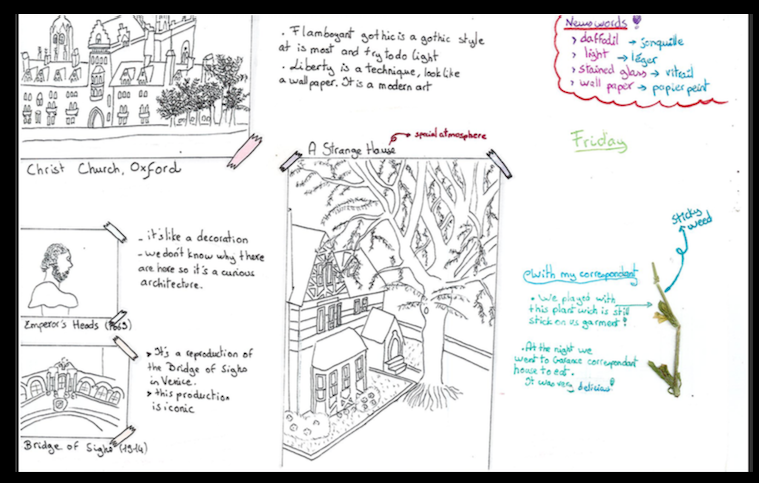 . Flamboyant gothic is a gothic style
at is most and try to do light
. Liberty is a technique, look like
a wallpaper. It is a modern art
New words
> daffodil → jonquille
> light → léger
> stained glass → vitrail
> wall paper → papier peint
Christ Church, Oxford
A Strange House
spaial atmosphere
Friday
- it's like a decoration
- we don't know why there
are here so it's a curious
architecture.
Emperor's Heads (1669)
> It's a reproduction of
the Bridge of Sighs
in Venice.
> this production
is iconic
Bridge of Sighs (1914)
sticky
weed
With my correspondant
. We played with
this plant wich is still
stick on us garment!
. At the night we
went to Garance correspondant
house to eat.
It was very delicius!